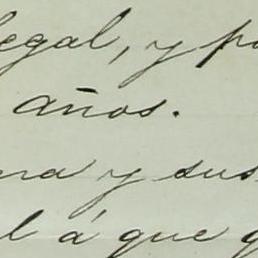 legal, y po
años.
na y sus
l á que g